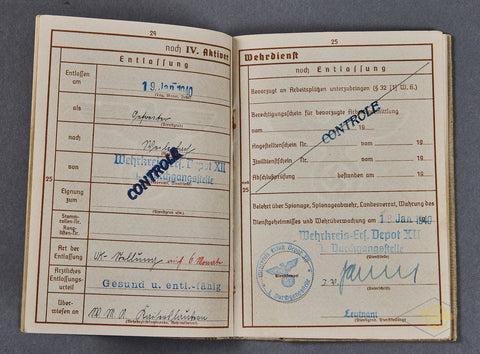 24
noch IV. Aktiver
Entlassung
Entlassen am 19. Jan. 1940
(Tag, Monat, Jahr)
als Gefreiter
(Dienstgrad)
nach
CONTROLE
von Wehrkreis-Ers. Depot XII
Durchgangsstelle
25
Eignung zum
Stammrollen-Nr.
Ranglisten-Nr.
Art der Entlassung UK-Stellung auf 6 Monate
Ärztliches Entlassungs-Urteil Gesund u. entl.-fähig
Überwiesen an W.M.A. Kaiserslautern
25
Wehrdienst
noch Entlassung
Bevorzugt an Arbeitsplätzen unterzubringen (§ 32 [1] W.G.)
Berechtigungsschein für bevorzugte Arbeitsvermittlung
vom 19 CONTROLE
Angestelltenschein Nr. vom 19
Zivildienstschein Nr. vom 19
Abschlußprüfung bestanden am 19
25
Belehrt über Spionage, Spionageabwehr, Landesverrat, Wahrung des
Dienstgeheimnisses und Wehrüberwachung am 19. Jan. 1940
Wehrkreis-Ers. Depot XII
Durchgangsstelle
Dienststempel
(Unterschrift)
Leutnant
(Dienstgrad, Dienststellung)